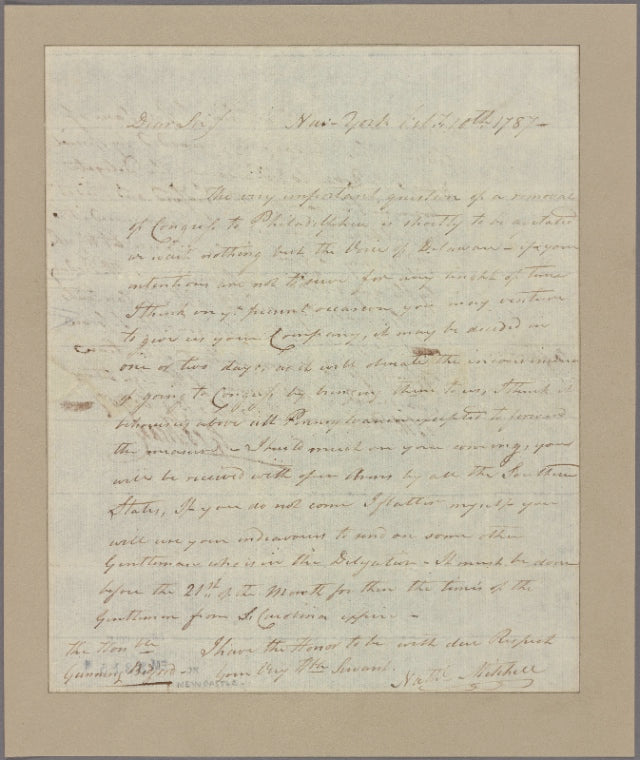 Dear Sir New-York Octr. 10th. 1787-
The very important question of a removal
of Congress to Philadelphia is shortly to be agitated
we wait nothing but the Voice of Delaware - if your
intentions are not to serve for any length of time
I think on ye. present occasion you may venture
to give us your Company, it may be decided in
one of two days, as it will obviate the inconvenience
of going to Congress by bringing them to us, I think it
behooves you above all Pennsylvania excepted to forward
the measure - I trust much on your coming, you
will be received with open Arms by all the Southern
States, If you do not come I flatter myself you
will use your endeavours to send on some other
Gentleman who is in the Delegation - It must be done
before the 21st of the Month for then the times of the
Gentlemen from S. Carolina expire -
I have the Honor to be with due Respect
Your Very Hble Servant.
Nathl Mitchell
The Honble
Gunning Bedford - Jr
NEWCASTLE